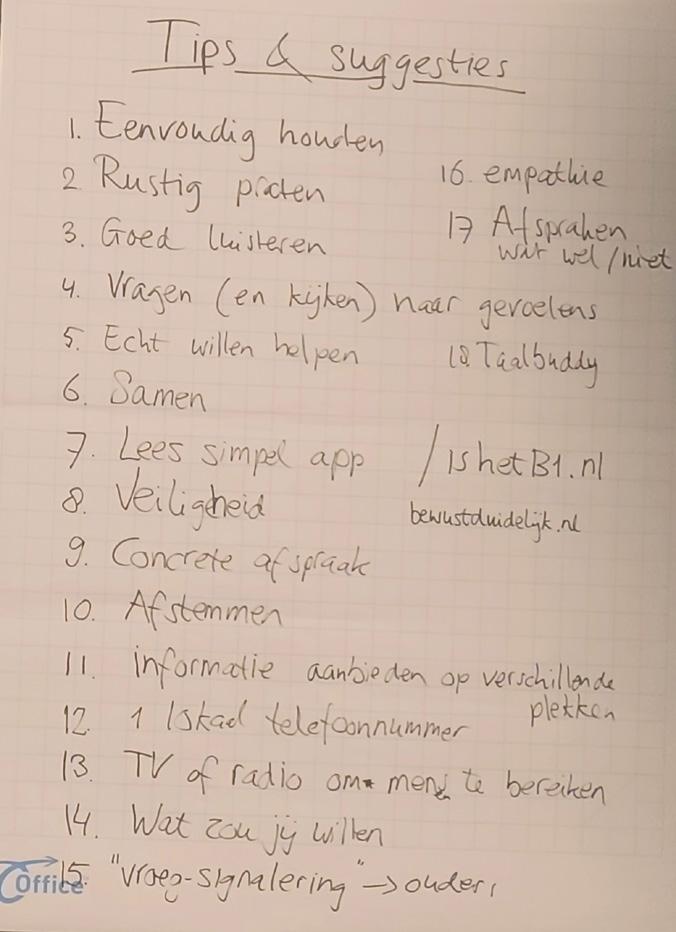 Tips & suggesties
1. Eenvoudig houden
2 Rustig praten
3. Goed luisteren
4. Vragen (en kijken) naar gevoelens
5. Echt willen helpen
6. Samen
7. Lees simpel app / IshetB1.nl
bewustduidelijk.nl
8. Veiligheid
9. Concrete afspraak
10. Afstemmen
11. informatie aanbieden op verschillende
plekken
12. 1 telefoonnummer
13. TV of radio om mens te bereiken
14. Wat zou jij willen
15. "vroeg-signalering" → ouders
16. empathie
17 Afspraken
wat wel/niet
18. Taalbuddy
Office